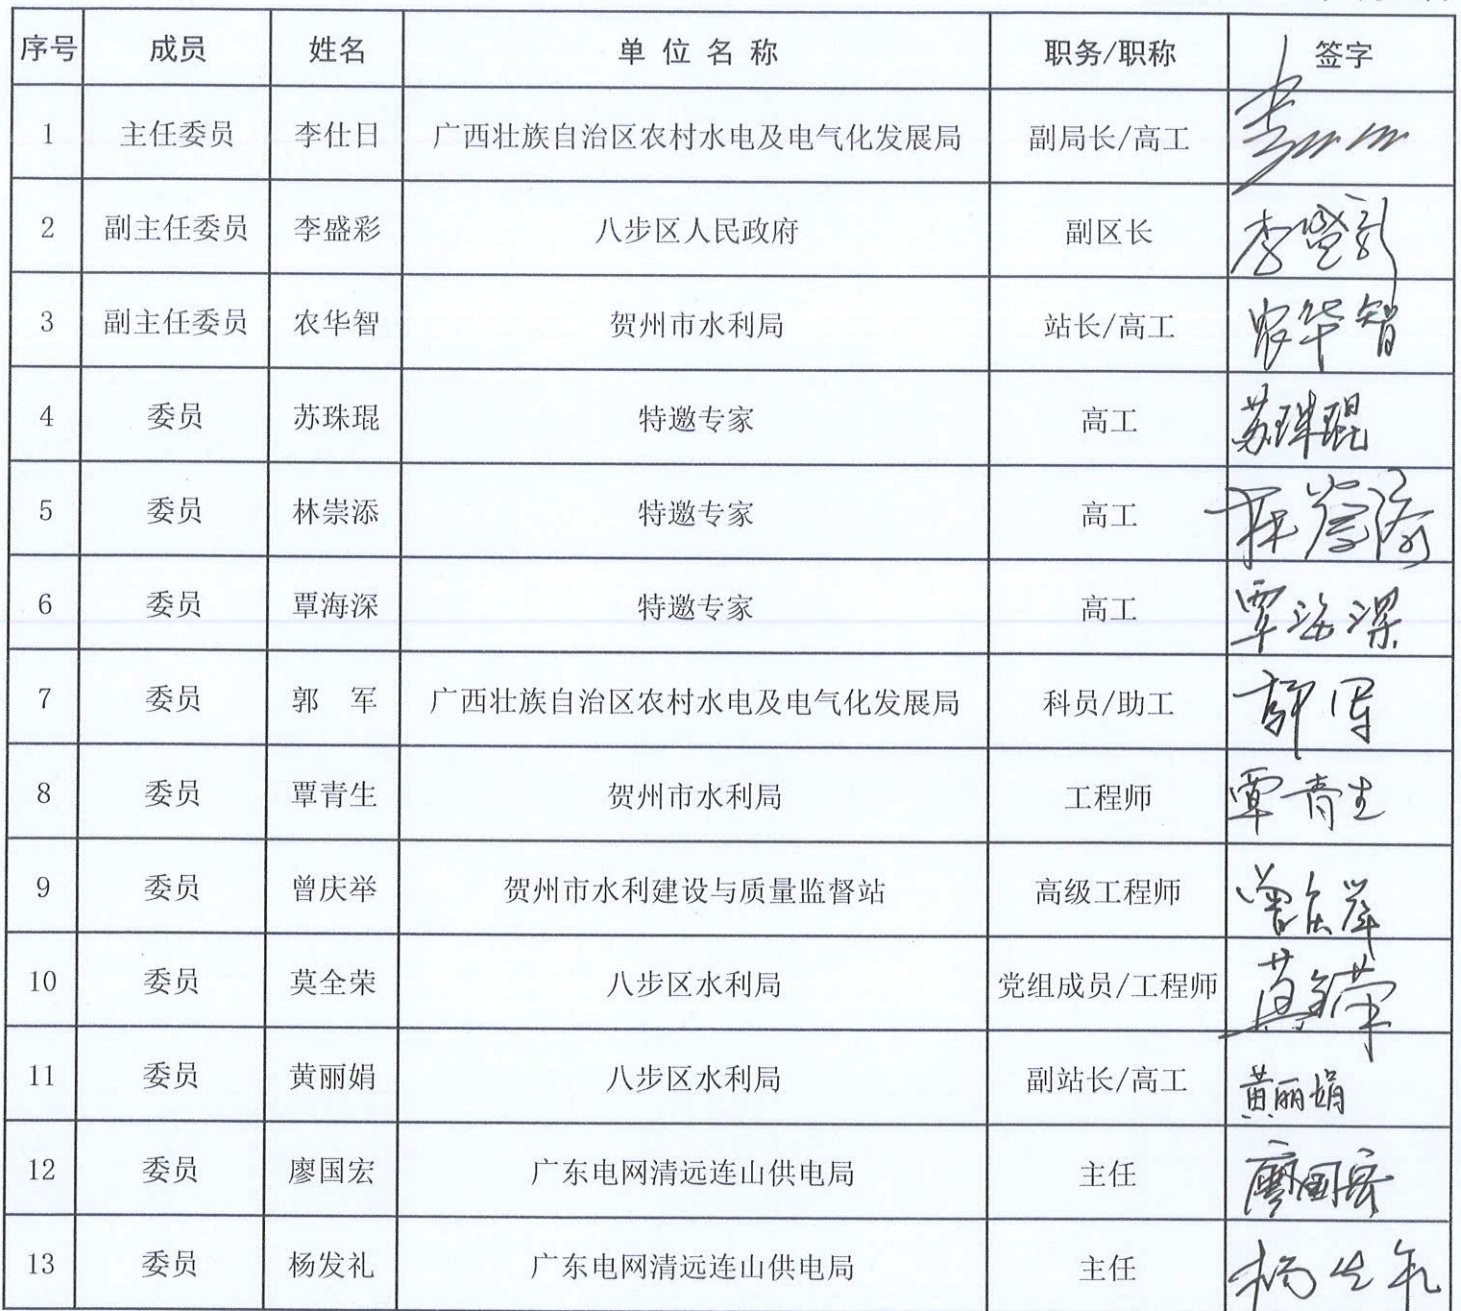 序号 成员 姓名 单位名称 职务/职称 签字
1 主任委员 李仕日 广西壮族自治区农村水电及电气化发展局 副局长/高工
2 副主任委员 李盛彩 八步区人民政府 副区长 李盛彩
3 副主任委员 农华智 贺州市水利局 站长/高工 农华智
4 委员 苏珠琨 特邀专家 高工 苏珠琨
5 委员 林崇添 特邀专家 高工 林崇添
6 委员 覃海深 特邀专家 高工 覃海深
7 委员 郭 军 广西壮族自治区农村水电及电气化发展局 科员/助工 郭军
8 委员 覃青生 贺州市水利局 工程师 覃青生
9 委员 曾庆举 贺州市水利建设与质量监督站 高级工程师 曾庆举
10 委员 莫全荣 八步区水利局 党组成员/工程师 莫全荣
11 委员 黄丽娟 八步区水利局 副站长/高工 黄丽娟
12 委员 廖国宏 广东电网清远连山供电局 主任 廖国宏
13 委员 杨发礼 广东电网清远连山供电局 主任 杨发礼